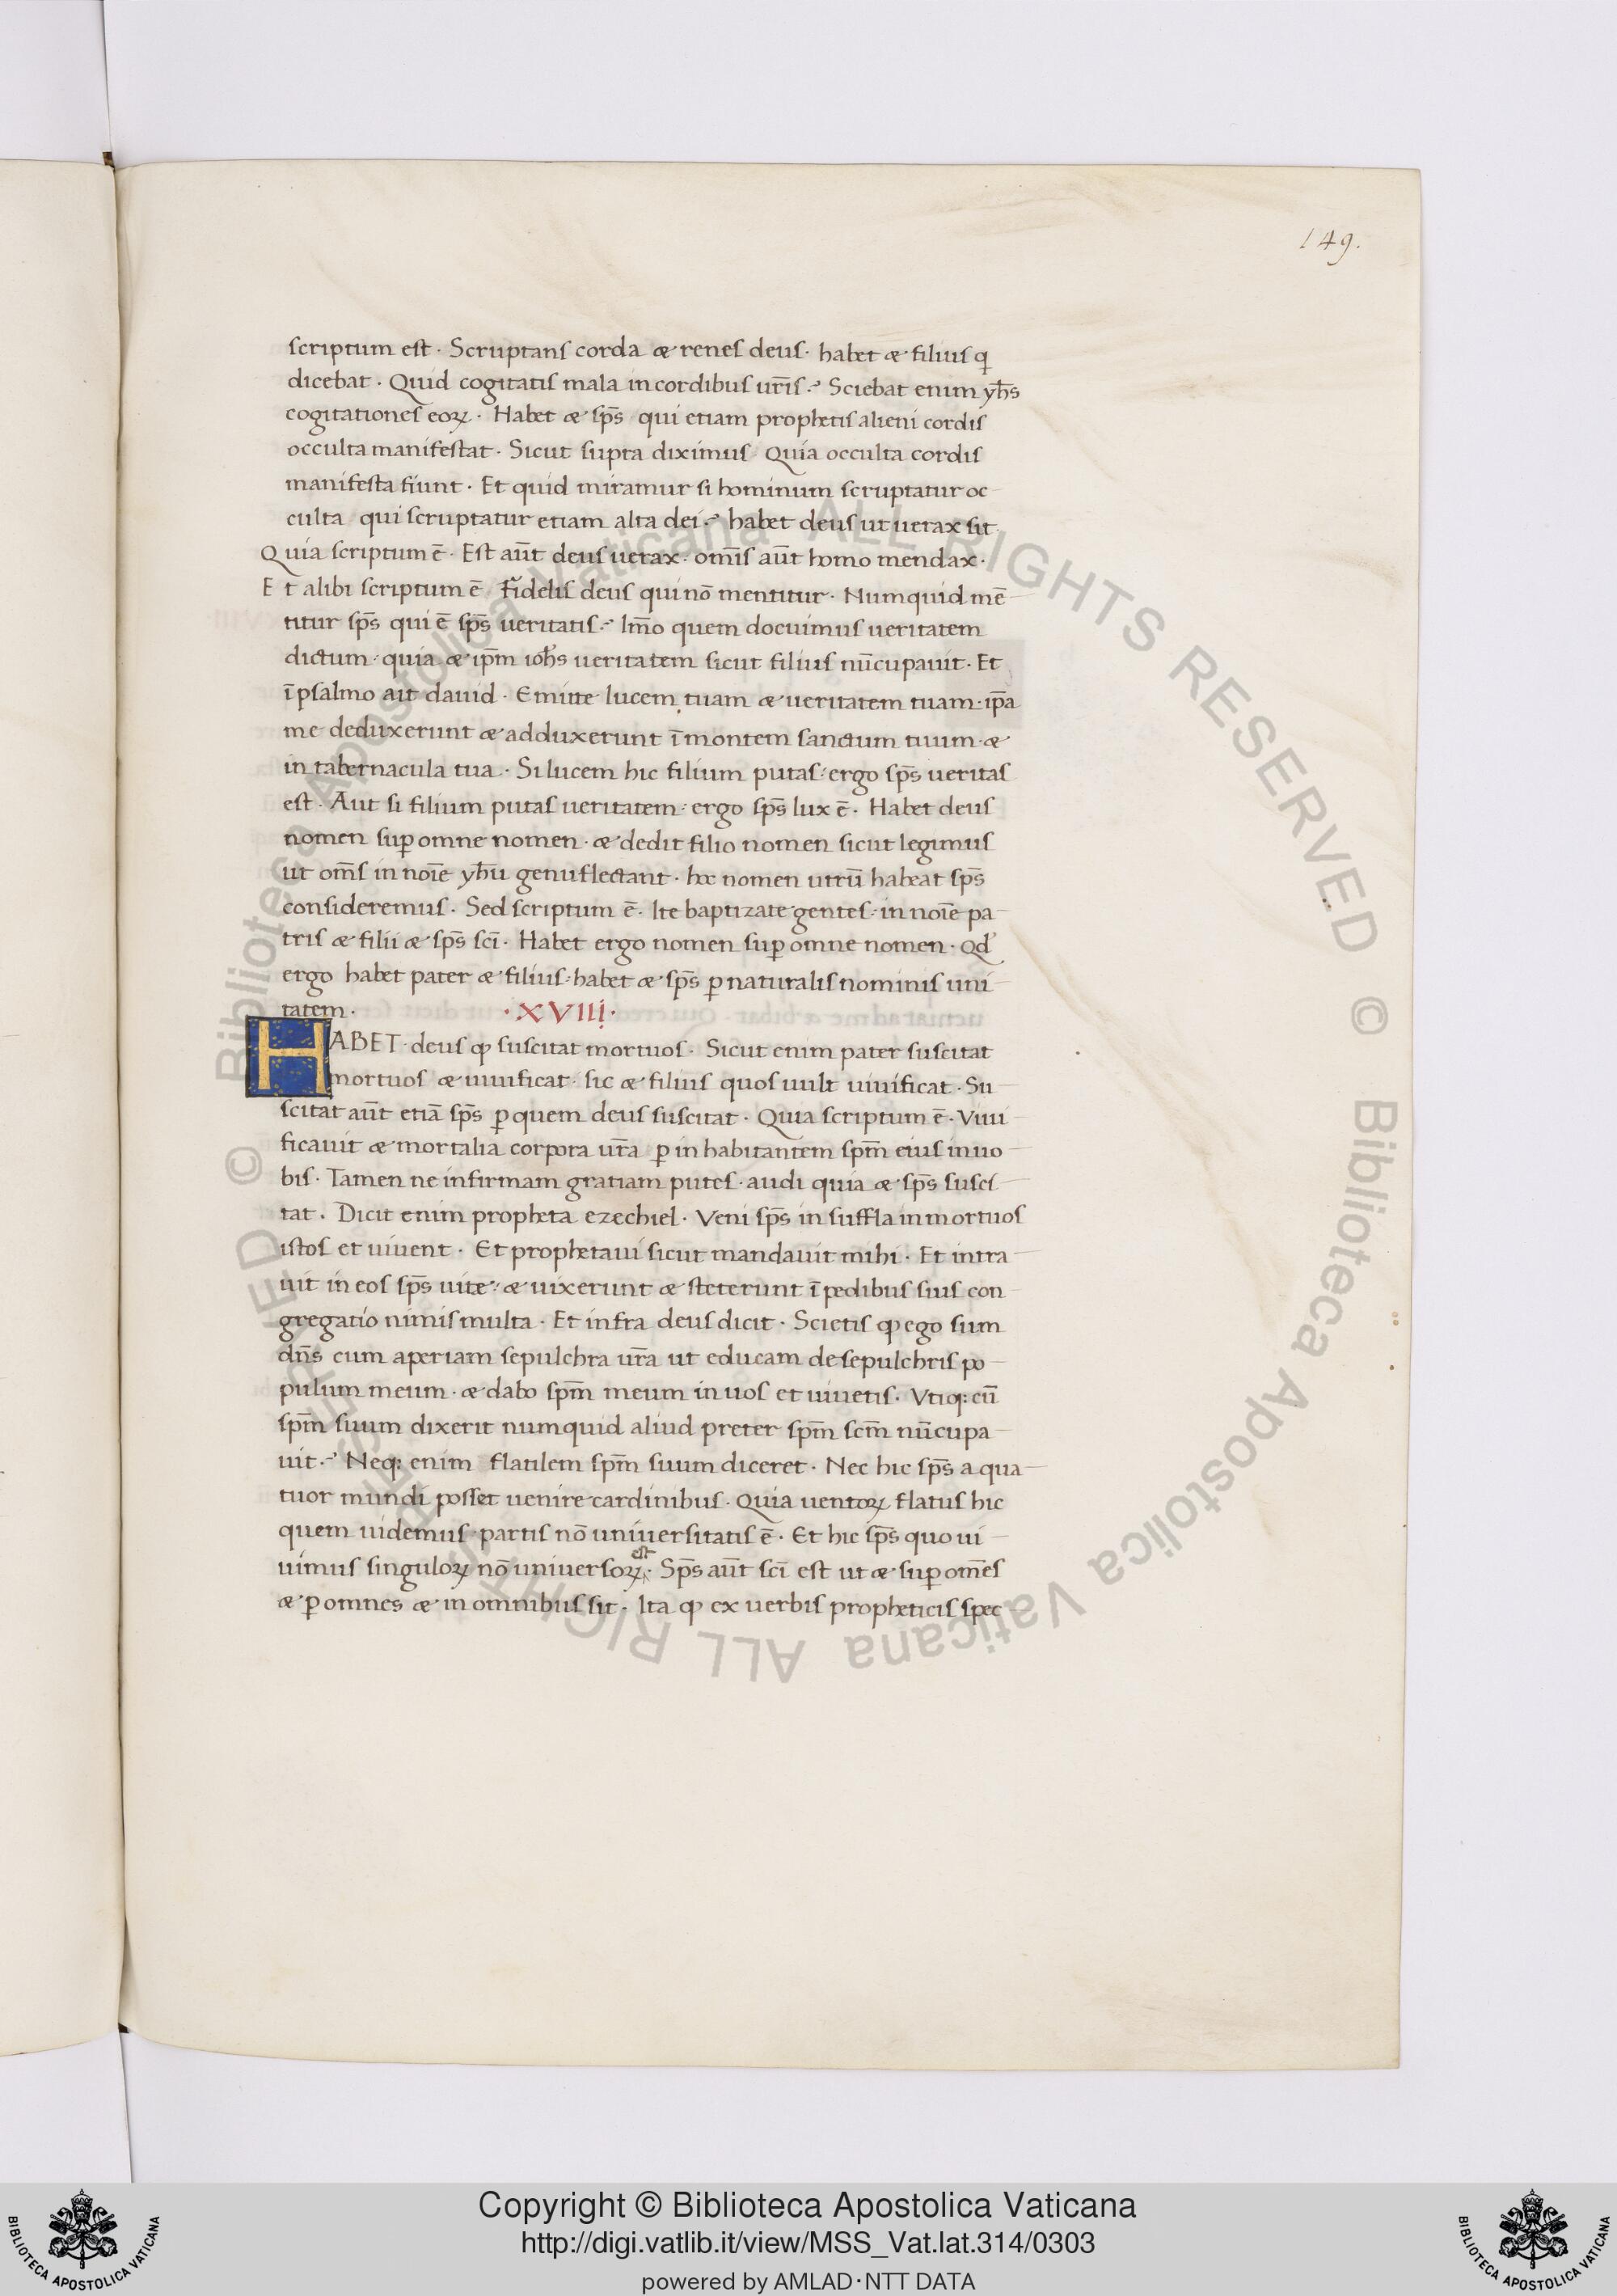 149.
scriptum est · Scruptans corda æ renes deus · habet æ filius q
dicebat · Quid cogitatis mala in cordibus ur̄is ·? Sciebat enim yħs
cogitationes eoꝝ · Habet æ sp̄s qui etiam prophetis alieni cordis
occulta manifestat · Sicut supra diximus Quia occulta cordis
manifesta fiunt · Et quid miramur si hominum scruptatur oc
culta qui scruptatur etiam alta dei ·? habet deus ut uerax sit
Quia scriptum ē · Est aūt deus uerax · om̄is aūt homo mendax ·
Et alibi scriptum ē Fidelis deus qui nō mentitur · Numquid mē
titur sp̄s qui ē sp̄s ueritatis ·? Im̄o quem docuimus ueritatem
dictum · quia æ ip̄m ioħs ueritatem sicut filius nūcupauit · Et
ī psalmo ait dauid · Emitte lucem tuam æ ueritatem tuam · ip̄a
me deduxerunt æ adduxerunt ī montem sanctum tuum · æ
in tabernacula tua · Si lucem hic filium putas · ergo sp̄s ueritas
est · Aut si filium putas ueritatem · ergo sp̄s lux ē · Habet deus
nomen suꝑ omne nomen · æ dedit filio nomen sicut legimus
ut om̄s in noīe yħu genuflectant · hoc nomen utrū habeat sp̄s
consideremus · Sed scriptum ē · Ite baptizate gentes · in noīe pa
tris æ filii æ sp̄s sc̄i · Habet ergo nomen suꝑ omne nomen · Qd'
ergo habet pater æ filius · habet æ sp̄s ꝑ naturalis nominis uni
tatem ·
· XVIII ·
HABET · deus ꝙ suscitat mortuos · Sicut enim pater suscitat
mortuos æ uiuificat · sic æ filius quos uult uiuificat · Su
scitat aūt etiā sp̄s ꝑ quem deus suscitat · Quia scriptum ē · Viui
ficauit æ mortalia corpora ur̄a ꝑ in habitantem sp̄m eius in uo
bis · Tamen ne infirmam gratiam putes · audi quia æ sp̄s susci
tat · Dicit enim propheta ezechiel · Veni sp̄s in suffla in mortuos
istos et uiuent · Et prophetaui sicut mandauit mihi · Et intra
uit in eos sp̄s uitæ · æ uixerunt æ steterunt ī pedibus suis con
gregatio nimis multa · Et infra deus dicit · Scietis ꝙ ego sum
dn̄s cum aperiam sepulchra ur̄a ut educam de sepulchris po
pulum meum · æ dabo sp̄m meum in uos et uiuetis · Vtiq: cū
sp̄m suum dixerit numquid aliud preter sp̄m sc̄m nūcupa
uit ·? Neq: enim flatilem sp̄m suum diceret · Nec hic sp̄s a qua
tuor mundi posset uenire cardinibus · Quia uentoꝝ flatus hic
quem uidemus partis nō uniuersitatis ē · Et hic sp̄s quo ui
uimus singuloꝝ nō uniuersoꝝ est · Sp̄s aūt sc̄i est ut æ suꝑ om̄es
æ ꝑ omnes æ in omnibus sit · Ita ꝙ ex uerbis propheticis spec
© Biblioteca Apostolica Vaticana ALL RIGHTS RESERVED
© Biblioteca Apostolica Vaticana ALL RIGHTS RESERVED
Copyright © Biblioteca Apostolica Vaticana
http://digi.vatlib.it/view/MSS_Vat.lat.314/0303
powered by AMLAD·NTT DATA
BIBLIOTECA APOSTOLICA VATICANA
BIBLIOTECA APOSTOLICA VATICANA